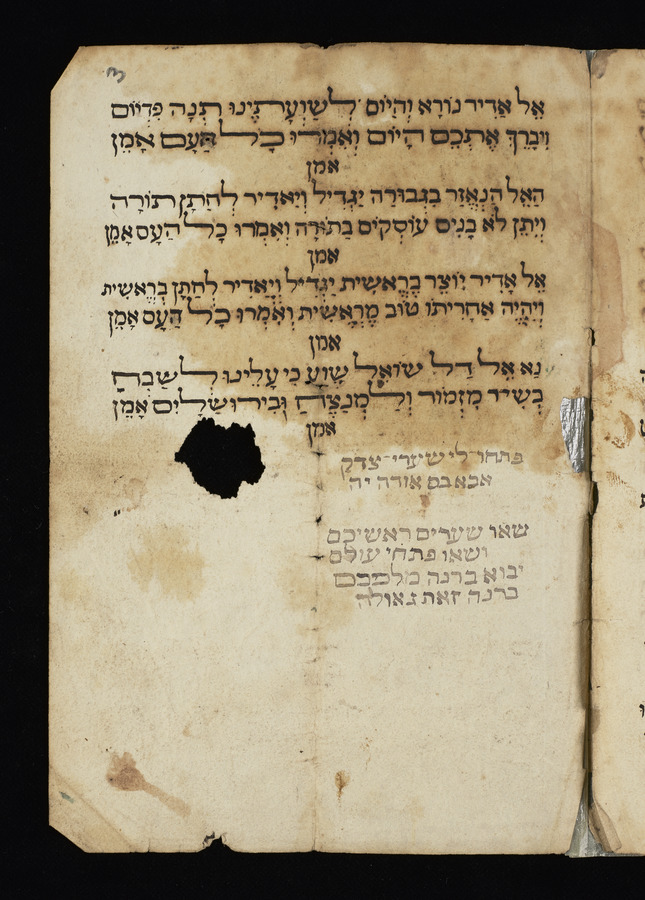 אֵל אַדִּיר נוֹרָא וְהַיּוֹם לְשַׁוְעָתֵינוּ תְּנָה פִדְיוֹם
וִיבָרֵךְ אֶתְכֶם הַיּוֹם וְאִמְרוּ כָל הָעָם אָמֵן
אמן
הָאֵל הַנֶאֱזָר בִּגְבוּרָה יַגְדִיל וְיַאדִיר לְחַתַן תּוֹרָה
וְיִתֵּן לוֹ בָנִים עוֹסְקִים בַּתּוֹרָה וְאִמְרוּ כָל הָעָם אָמֵן
אמן
אֵל אַדִיר יוֹצֵר בְּרֵאשִׁית יַגְדִיל וְיַאֲדִיר לְחַתַן בְּרֵאשִׁית
וְיִהְיֶה אַחֲרִיתוֹ טוֹב מֵרֵאשִׁית וְאִמְרוּ כָל הָעָם אָמֵן
אמן
נָא אֵל דַל שׁוֹאֵל שָׁוַע כִּי עָלֵינוּ לְשַׁבֵּחַ
בְּשִׁיר מִזְמוֹר וְלַמְנַצֵּחַ וּבִירוּשָׁלַיִם אָמֵן
אמן
פתחו לי שערי צדק
אבא בם אודה יה
שאו שערים ראשיכם
ושאו פתחי עולם
יבוא ברנה מלככם
ברנה זאת גאולה